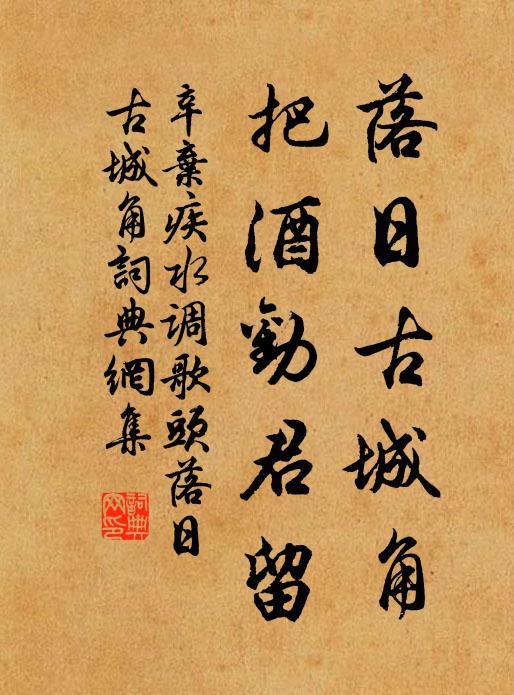 落日古城角
把酒勸君留
辛棄疾水调歌頭落日
古城角詞典網集
詞典網印